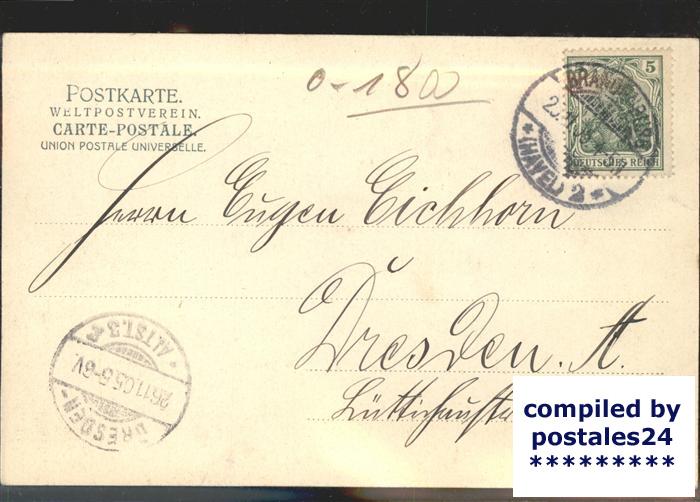 POSTKARTE.
WELTPOSTVEREIN.
CARTE-POSTALE.
UNION POSTALE UNIVERSELLE.
0-1800
5
DEUTSCHES REICH
BRANDENBURG
(HAVEL) 2
Herrn Eugen Eichhorn
Dresden. A.
DRESDEN-
ALTST. 3
26.11.05.6-8V.
compiled by
postales24
*********